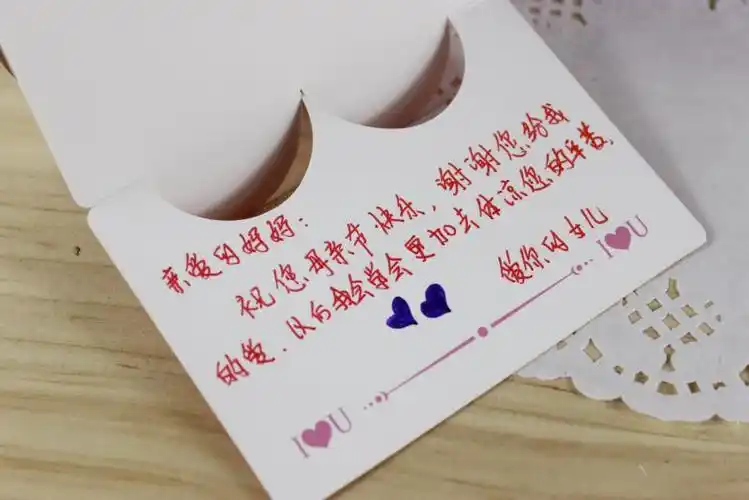 亲爱的妈妈：
祝您母亲节快乐，谢谢您给我
的爱．以后我会学会更加去体谅您的辛苦，
爱你的女儿
I♥U
I♥U